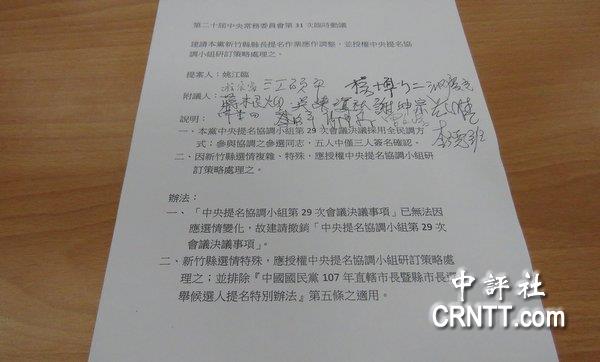 第二十屆中央常務委員會第31次臨時動議
建請本黨新竹縣縣長提名作業應作調整，並授權中央提名協
調小組研訂策略處理之。
提案人：姚江臨
附議人：
說明：
一、本黨中央提名協調小組第29次會議決議採用全民調方
式；參與協調之參選同志，五人中僅三人簽名確認。
二、因新竹縣選情複雜、特殊，應授權中央提名協調小組研
訂策略處理之。
辦法：
一、「中央提名協調小組第29次會議決議事項」已無法因
應選情變化，故建請撤銷「中央提名協調小組第29次
會議決議事項」。
二、新竹縣選情特殊，應授權中央提名協調小組研訂策略處
理之；並排除『中國國民黨107年直轄市長暨縣市長選
舉候選人提名特別辦法』第五條之適用。
中評社
CRNTT.com